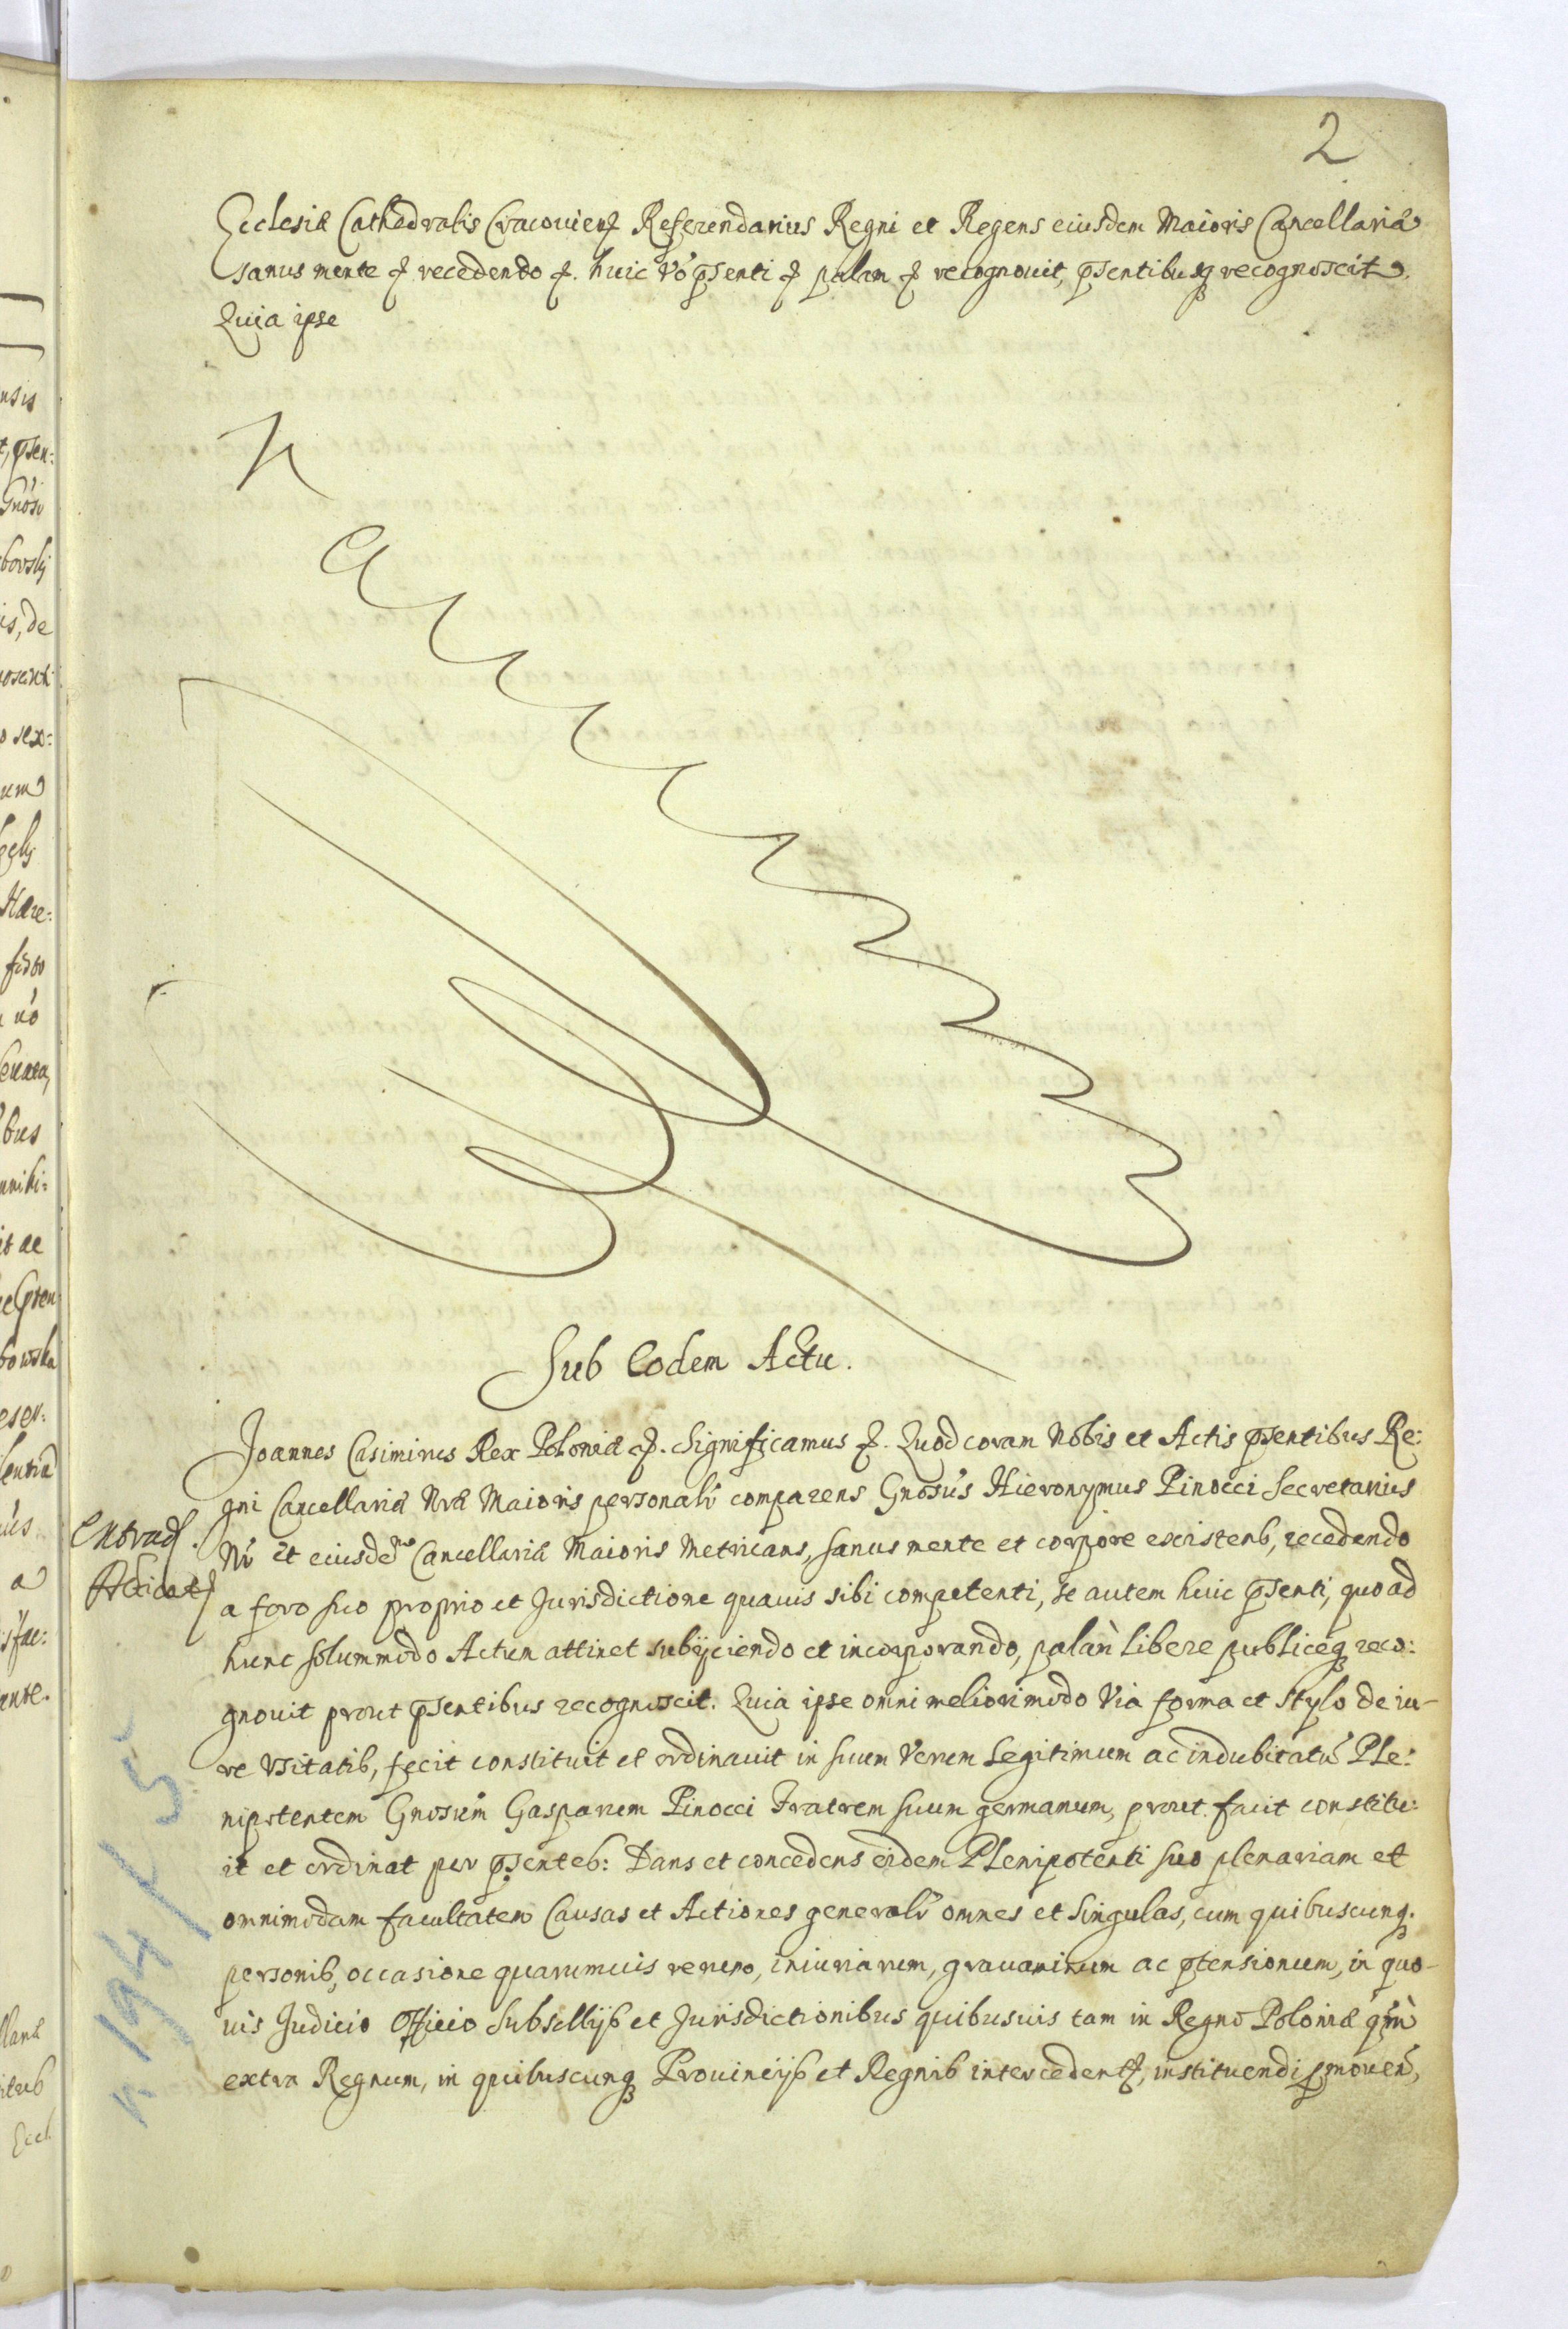 2
Ecclesiæ Cathedralis Cracovien[sis] Referendarius Regni et Regens eiusdem Maioris Cancellariæ
sanus mente &. recedendo &. huic vó pśenti &. palam &. recognouit, pśentibusq recognoscit.
Quia ipse
Sub Eodem Actu.
Joannes Casimirus Rex Poloniæ &. Significamus &. Quod coram Nobis et Actis pśentibus Re:
gni Cancellariæ Nræ Maioris personalr comparens Gnosus Hieronymus Pinocci Secretarius
Nr et eiusdem Cancellariæ Maioris Metricans, sanus mente et corpore existens, recedendo
a foro suo proprio et Jurisdictione quauis sibi competenti, se autem huic pśenti, quo ad
hunc solummodo Actum attinet subijciendo et incorporando, palam libere publiceq reco:
gnouit prout pśentibus recognoscit. Quia ipse omni meliori modo via forma et stylo de iu-
re vsitatis, fecit constituit et ordinauit in suum verum legitimum ac indubitatu Ple:
nipotentem Gnosum Gasparum Pinocci Fratrem suum germanum, prout facit constitu:
it et ordinat per pśentes: Dans et concedens eidem Plenipotenti suo plenariam et
omnimodam facultatem Causas et Actiones generalr omnes et singulas, cum quibuscunq.
personis, occasione quarumuis rerum, iniuriarum, grauaminum ac ptensionum, in quo-
uis Judicio Officio Subsellijs et Jurisdictionibus quibusuis tam in Regno Poloniæ qm
extra Regnum, in quibuscunq Prouincijs et Regnis intercedent, instituendi pmouen,
n 194 / 5